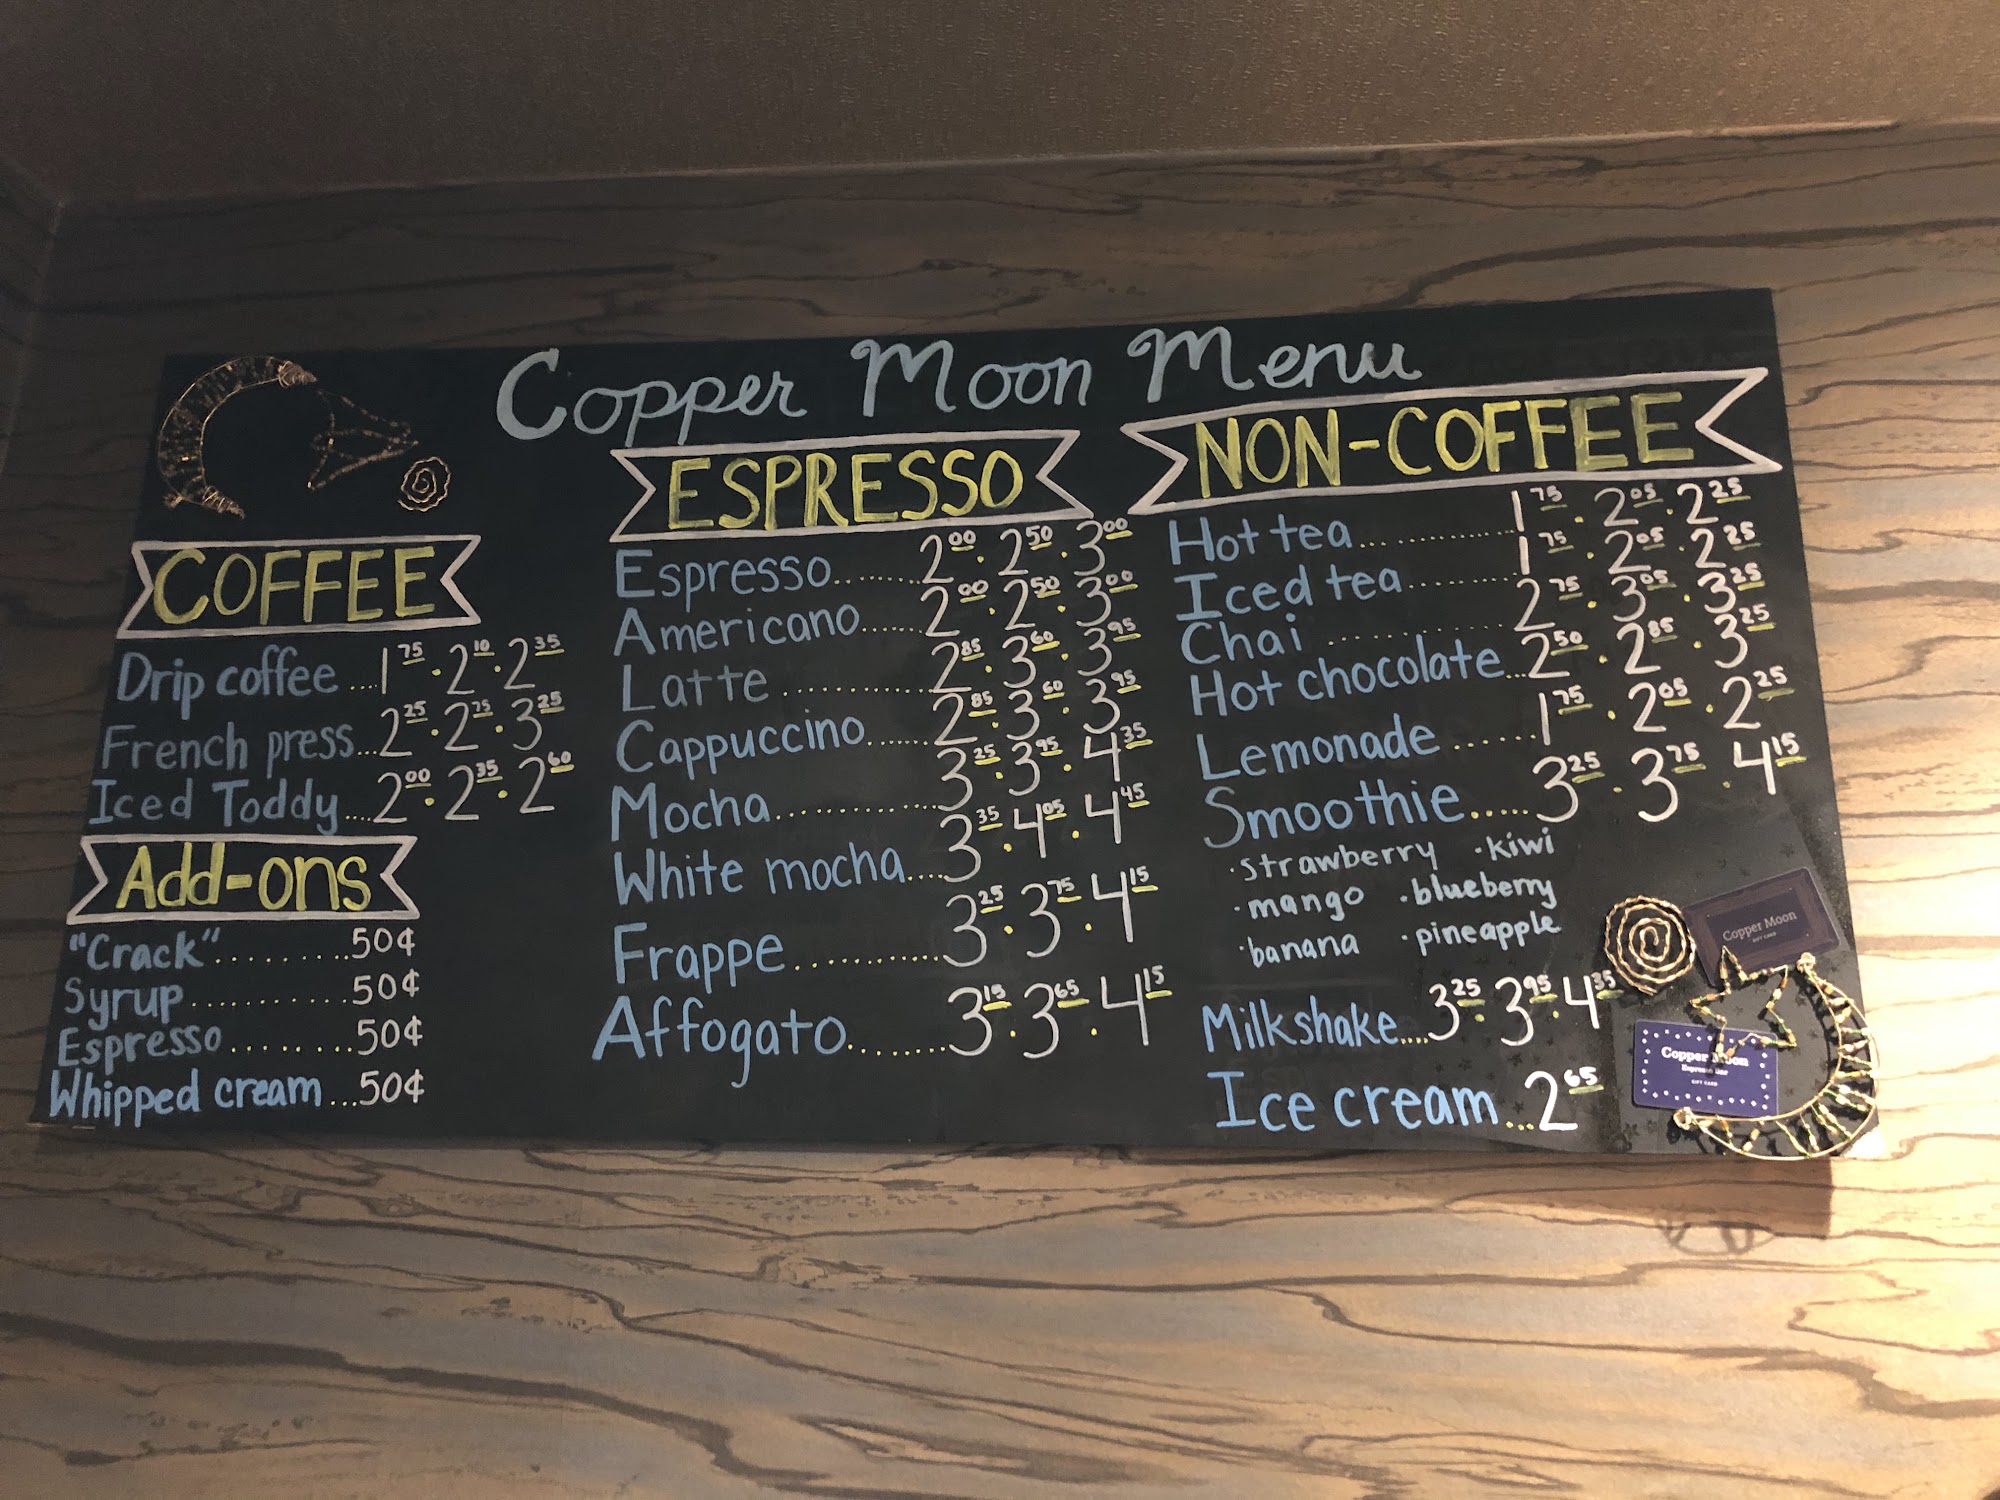 Copper Moon Menu
COFFEE
Drip coffee....1 75 · 2 10 · 2 35
French press...2 25 · 2 75 · 3 25
Iced Toddy....2 00 · 2 35 · 2 60
Add-ons
"Crack".........50¢
Syrup............50¢
Espresso.........50¢
Whipped cream...50¢
ESPRESSO
Espresso........2 00 · 2 50 · 3 00
Americano.....2 00 · 2 50 · 3 00
Latte ............2 85 · 3 60 · 3 95
Cappuccino......2 85 · 3 60 · 3 95
Mocha............3 25 · 3 95 · 4 35
White mocha....3 35 · 4 05 · 4 45
Frappe............3 25 · 3 75 · 4 15
Affogato........3 15 · 3 65 · 4 15
NON-COFFEE
Hot tea...............1 75 · 2 05 · 2 25
Iced tea..........1 75 · 2 05 · 2 25
Chai ................2 75 · 3 05 · 3 25
Hot chocolate...2 50 · 2 85 · 3 25
Lemonade.......1 75 · 2 05 · 2 25
Smoothie.....3 25 · 3 75 · 4 15
·strawberry ·kiwi
·mango ·blueberry
·banana ·pineapple
Milkshake....3 25 · 3 95 · 4 35
Ice cream...2 65
Copper Moon
GIFT CARD
Copper Moon
Espresso Bar
GIFT CARD